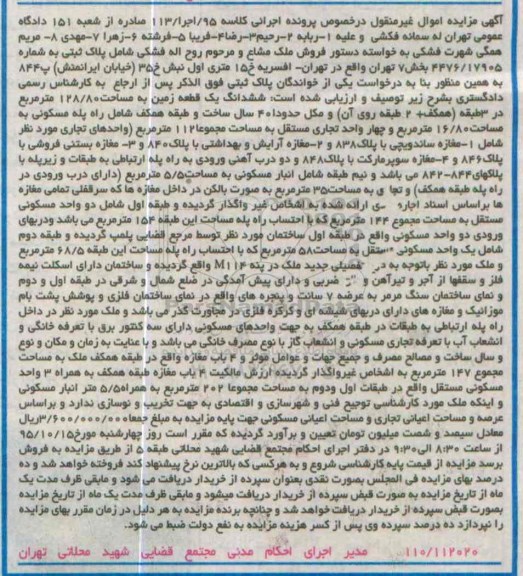 آگهی مزایده اموال غیرمنقول درخصوص پرونده اجرائی کلاسه 95/اجرا/113 صادره از شعبه 151 دادگاه
عمومی تهران له سمانه فکشی و علیه 1-ربابه 2-رحیم3-رضا4-فریبا 5-فرشته 6-زهرا 7-مهدی 8- مریم
همگی شهرت فشگی به خواسته دستور فروش ملک مشاع و مرحوم روح اله فشکی شامل پلاک ثبتی به شماره
4476/17905 بخش7 تهران واقع در تهران- افسریه خ15 متری اول نبش خ35 (خیابان ایرانمنش) پ844
به همین منظور بنا به درخواست یکی از خواندگان پلاک ثبتی فوق الذکر پس از ارجاع به کارشناس رسمی
دادگستری بشرح زیر توصیف و ارزیابی شده است: ششدانگ یک قطعه زمین به مساحت128/80 مترمربع
در 3طبقه (همکف+ 2 طبقه روی آن) و مکل حدودا40 سال ساخت و طبقه همکف شامل راه پله مسکونی به
مساحت16/80 مترمربع و چهار واحد تجاری مستقل به مساحت مجموعا112 مترمربع (واحدهای تجاری مورد نظر
شامل 1-مغازه ساندویچی با پلاک838 و 2-مغازه آرایش و بهداشتی با پلاک840 و 3- مغازه بستنی فروشی با
پلاک846 و 4-مغازه سوپرمارکت با پلاک848 و دو درب آهنی ورودی به راه پله ارتباطی به طبقات و زیرپله با
پلاکهای844-842 می باشد و نیم طبقه شامل انبار مسکونی به مساحت5/5 مترمربع (دارای درب ورودی در
راه پله طبقه همکف) و تجا ی به مساحت35 مترمربع به صورت بالکن در داخل مغازه ها که سرقفلی تمامی مغازه
ها براساس اسناد اجاره ی ارائه شده به اشخاص غیر واگذار گردیده و طبقه اول شامل دو واحد مسکونی
مستقل به مساحت مجموع 144 مترمربع که با احتساب راه پله مساحت این طبقه 154 مترمربع می باشد ودربهای
ورودی دو واحد مسکونی واقع در طبقه اول ساختمان مورد نظر توسط مرجع قضایی پلمپ گردیده و طبقه دوم
شامل یک واحد مسکونی مستقل به مساحت58 مترمربع که با احتساب راه پله مساحت این طبقه 68/5 مترمربع
و ملک مورد نظر باتوجه به تفصیلی جدید ملک در پهنه M114 واقع گردیده و ساختمان دارای اسکلت نیمه
فلز و سقفها از آجر و تیرآهن و ضربی و دارای پیش آمدگی در ضلع شمال و شرقی در طبقه اول و دوم
و نمای ساختمان سنگ مرمر به عرضه 7 سانت و پنجره های واقع در نمای ساختمان فلزی و پوشش پشت بام
موزائیک و مغازه های دارای دربهای شیشه ای و کرکره فلزی در مجاورت گذر می باشد و ملک مورد نظر در داخل
راه پله ارتباطی به طبقات در طبقه همکف به جهت واحدهای مسکونی دارای سه کنتور برق با تعرفه خانگی و
انشعاب آب با تعرفه تجاری مسکونی و انشعاب گاز با نوع مصرف خانگی می باشد و با عنایت به زمان و مکان و نوع
و سال ساخت و مصالح مصرف و جمیع جهات و عوامل موثر و 4 باب مغازه واقع در طبقه همکف ملک به مساحت
مجموع 147 مترمربع به اشخاص غیرواگذار گردیده ارزش مالکیت 4 باب مغازه طبقه همکف به همراه 3 واحد
مسکونی مستقل واقع در طبقات اول ودوم به مساحت مجموعا 202 مترمربع به همراه5/5 متر انبار مسکونی
و اینکه ملک مورد کارشناسی توجیح فنی و شهرسازی و اقتصادی به جهت تخریب و نوسازی ندارد و براساس
عرصه و مساحت اعیانی تجاری و مساحت اعیانی مسکونی جهت پایه مزایده به مبلغ جمعا3/600/000/000ریال
معادل سیصد و شصت میلیون تومان تعیین و برآورد گردیده که مقرر است روز چهارشنبه مورخ95/10/15
از ساعت 8:30 الی9:30 در دفتر اجرای احکام مجتمع قضایی شهید محلاتی طبقه 5 از طریق مزایده به فروش
برسد مزایده از قیمت پایه کارشناسی شروع و به هرکسی که بالاترین نرخ پیشنهاد کند فروخته خواهد شد و ده
درصد بهای مزایده فی المجلس بصورت نقدی بعنوان سپرده از خریدار دریافت می شود و مابقی ظرف مدت یک
ماه از تاریخ مزایده به صورت قبض سپرده از خریدار دریافت میشود و مابقی ظرف مدت یک ماه از تاریخ مزایده
بصورت قبض سپرده از خریدار دریافت خواهد شد و چنانچه برنده مزایده به هر دلیل در زمان مقرر بهای مزایده
را نپردازد ده درصد سپرده وی پس از کسر هزینه مزایده به نفع دولت ضبط می شود.
110/112020 مدیر اجرای احکام مدنی مجتمع قضایی شهید محلاتی تهران